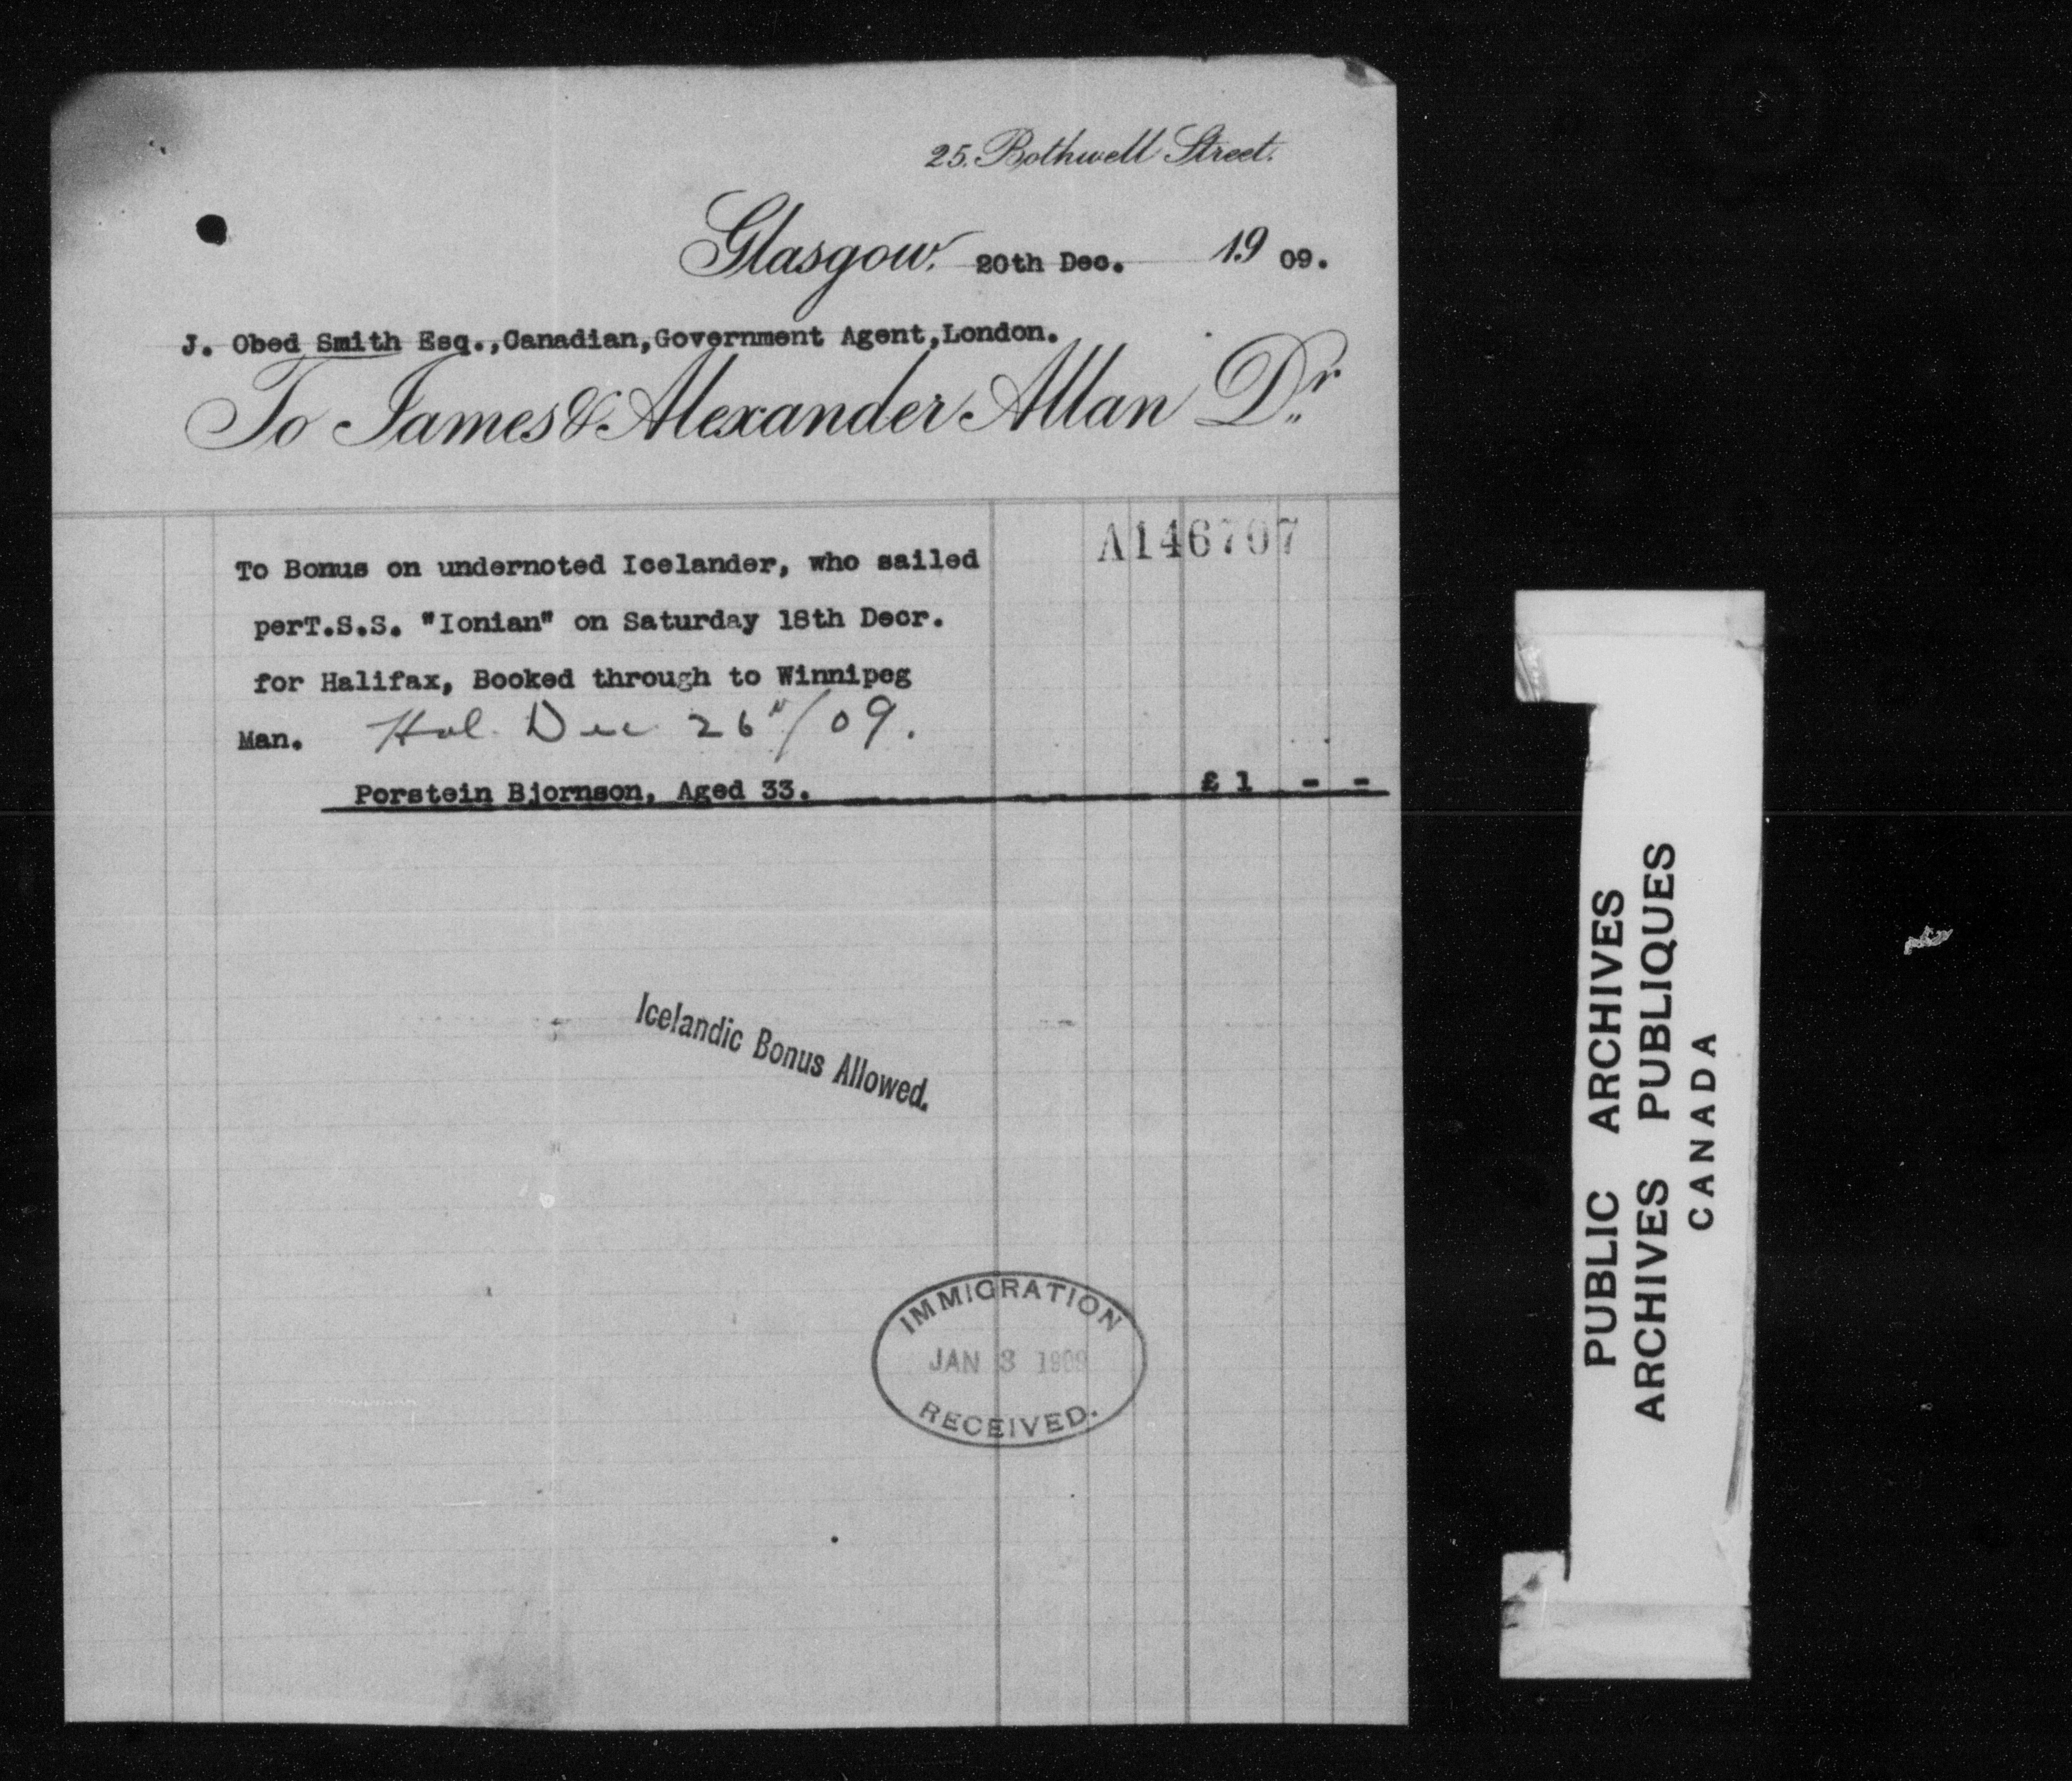 25. Bothwell Street.
Glasgow. 20th Dec. 19 09.
J. Obed Smith Esq.,Canadian,Government Agent,London.
To James & Alexander Allan Dr.
A146707
To Bonus on undernoted Icelander, who sailed
perT.S.S. "Ionian" on Saturday 18th Decr.
for Halifax, Booked through to Winnipeg
Man. Hal. Dec 26"/09.
Porstein Bjornson, Aged 33. £ 1 - -
Icelandic Bonus Allowed.
IMMIGRATION
JAN 3 1909
RECEIVED.
PUBLIC ARCHIVES
ARCHIVES PUBLIQUES
CANADA